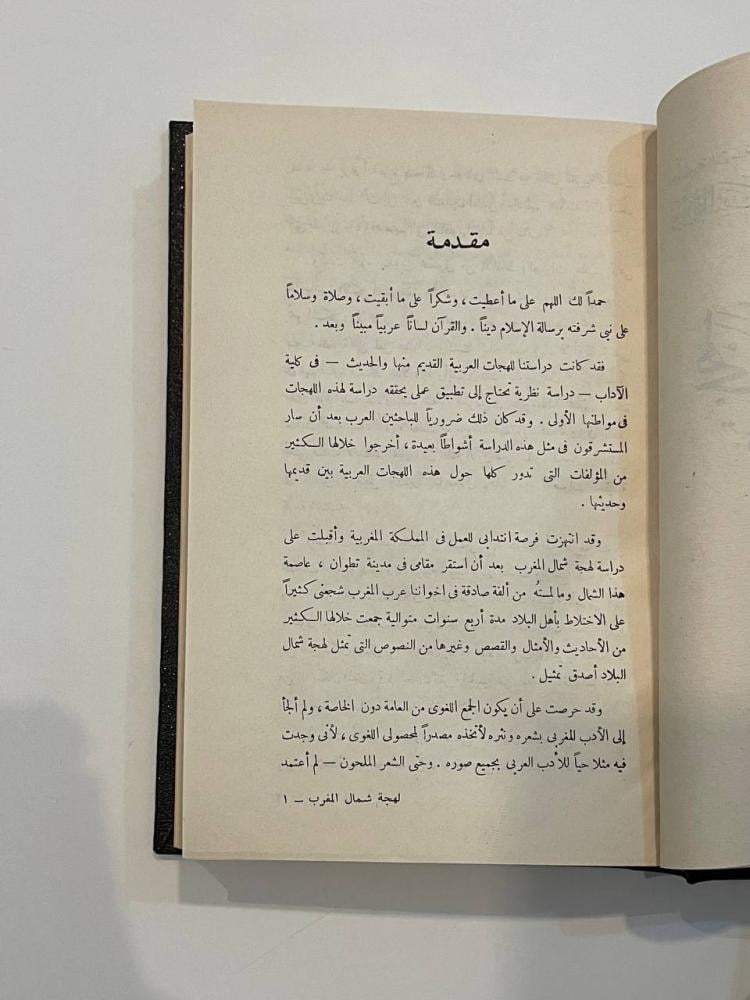 مقدمة
حمداً لك اللهم على ما أعطيت، وشكراً على ما أبقيت، وصلاة وسلاماً
على نبى شرفته برسالة الإسلام ديناً . والقرآن لساناً عربياً مبيناً وبعد .
فقد كانت دراستنا للهجات العربية القديم منها والحديث — فى كلية
الآداب — دراسة نظرية تحتاج إلى تطبيق عملى يحققه دراسة لهذه اللهجات
فى مواطنها الأولى . وقد كان ذلك ضرورياً للباحثين العرب بعد أن سار
المستشرقون فى مثل هذه الدراسة أشواطاً بعيدة ، أخرجوا خلالها الكثير
من المؤلفات التى تدور كلها حول هذه اللهجات العربية بين قديمها
وحديثها .
وقد انتهزت فرصة انتدابى للعمل فى المملكة المغربية وأقبلت على
دراسة لهجة شمال المغرب بعد أن استقر مقامى فى مدينة تطوان ، عاصمة
هذا الشمال وما لمستُه من ألفة صادقة فى اخواننا عرب المغرب شجعنى كثيراً
على الاختلاط بأهل البلاد مدة أربع سنوات متوالية جمعت خلالها الكثير
من الأحاديث والأمثال والقصص وغيرها من النصوص التى تمثل لهجة شمال
البلاد أصدق تمثيل .
وقد حرصت على أن يكون الجمع اللغوى من العامة دون الخاصة ، ولم ألجأ
إلى الأدب المغربى بشعره ونثره لأتخذه مصدراً لمحصولى اللغوى ، لأنى وجدت
فيه مثلا حياً للأدب العربى بجميع صوره . وحتى الشعر الملحون — لم أعتمد
لهجة شمال المغرب – ١